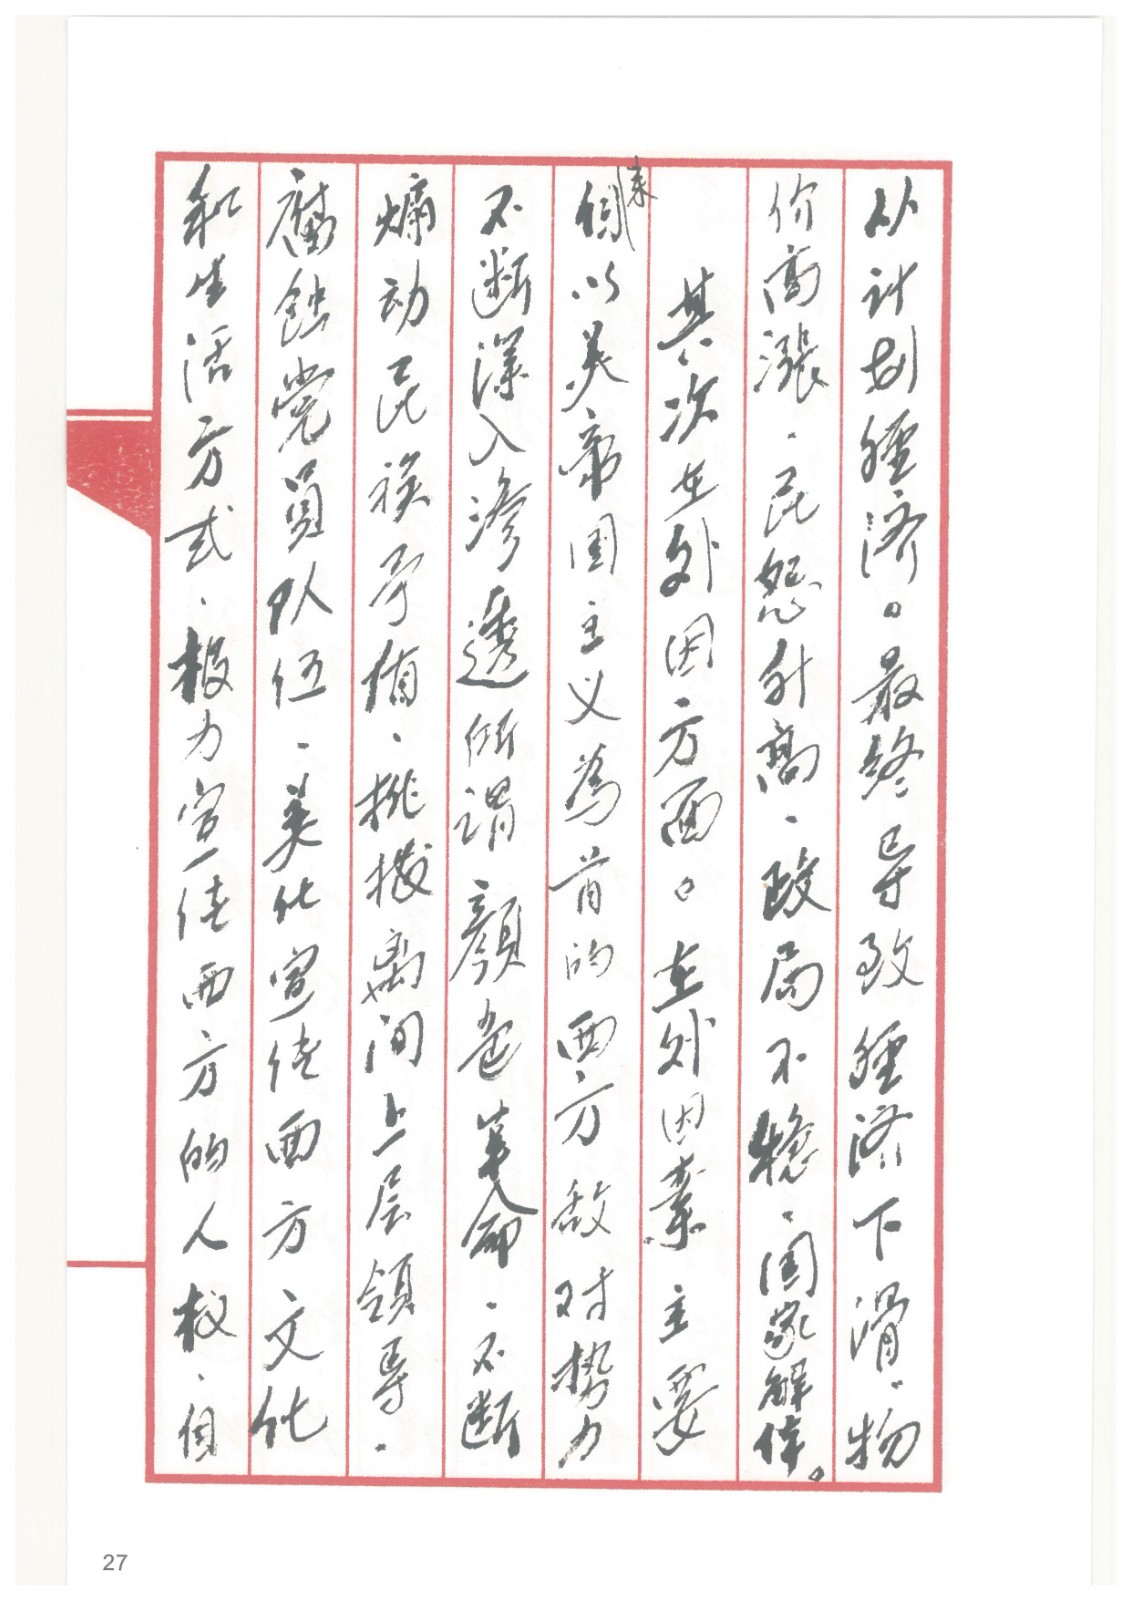 从计划经济。最终导致经济下滑、物
价高涨、民怨升高、政局不稳、国家解体。
其次在外因方面。在外因素主要
来
以美帝国主义为首的西方敌对势力
不断深入渗透所谓颜色革命、不断
煽动民族矛盾、挑拨离间上层领导、
腐蚀党员队伍、美化宣传西方文化
和生活方式、极力宣传西方的人权、自
27